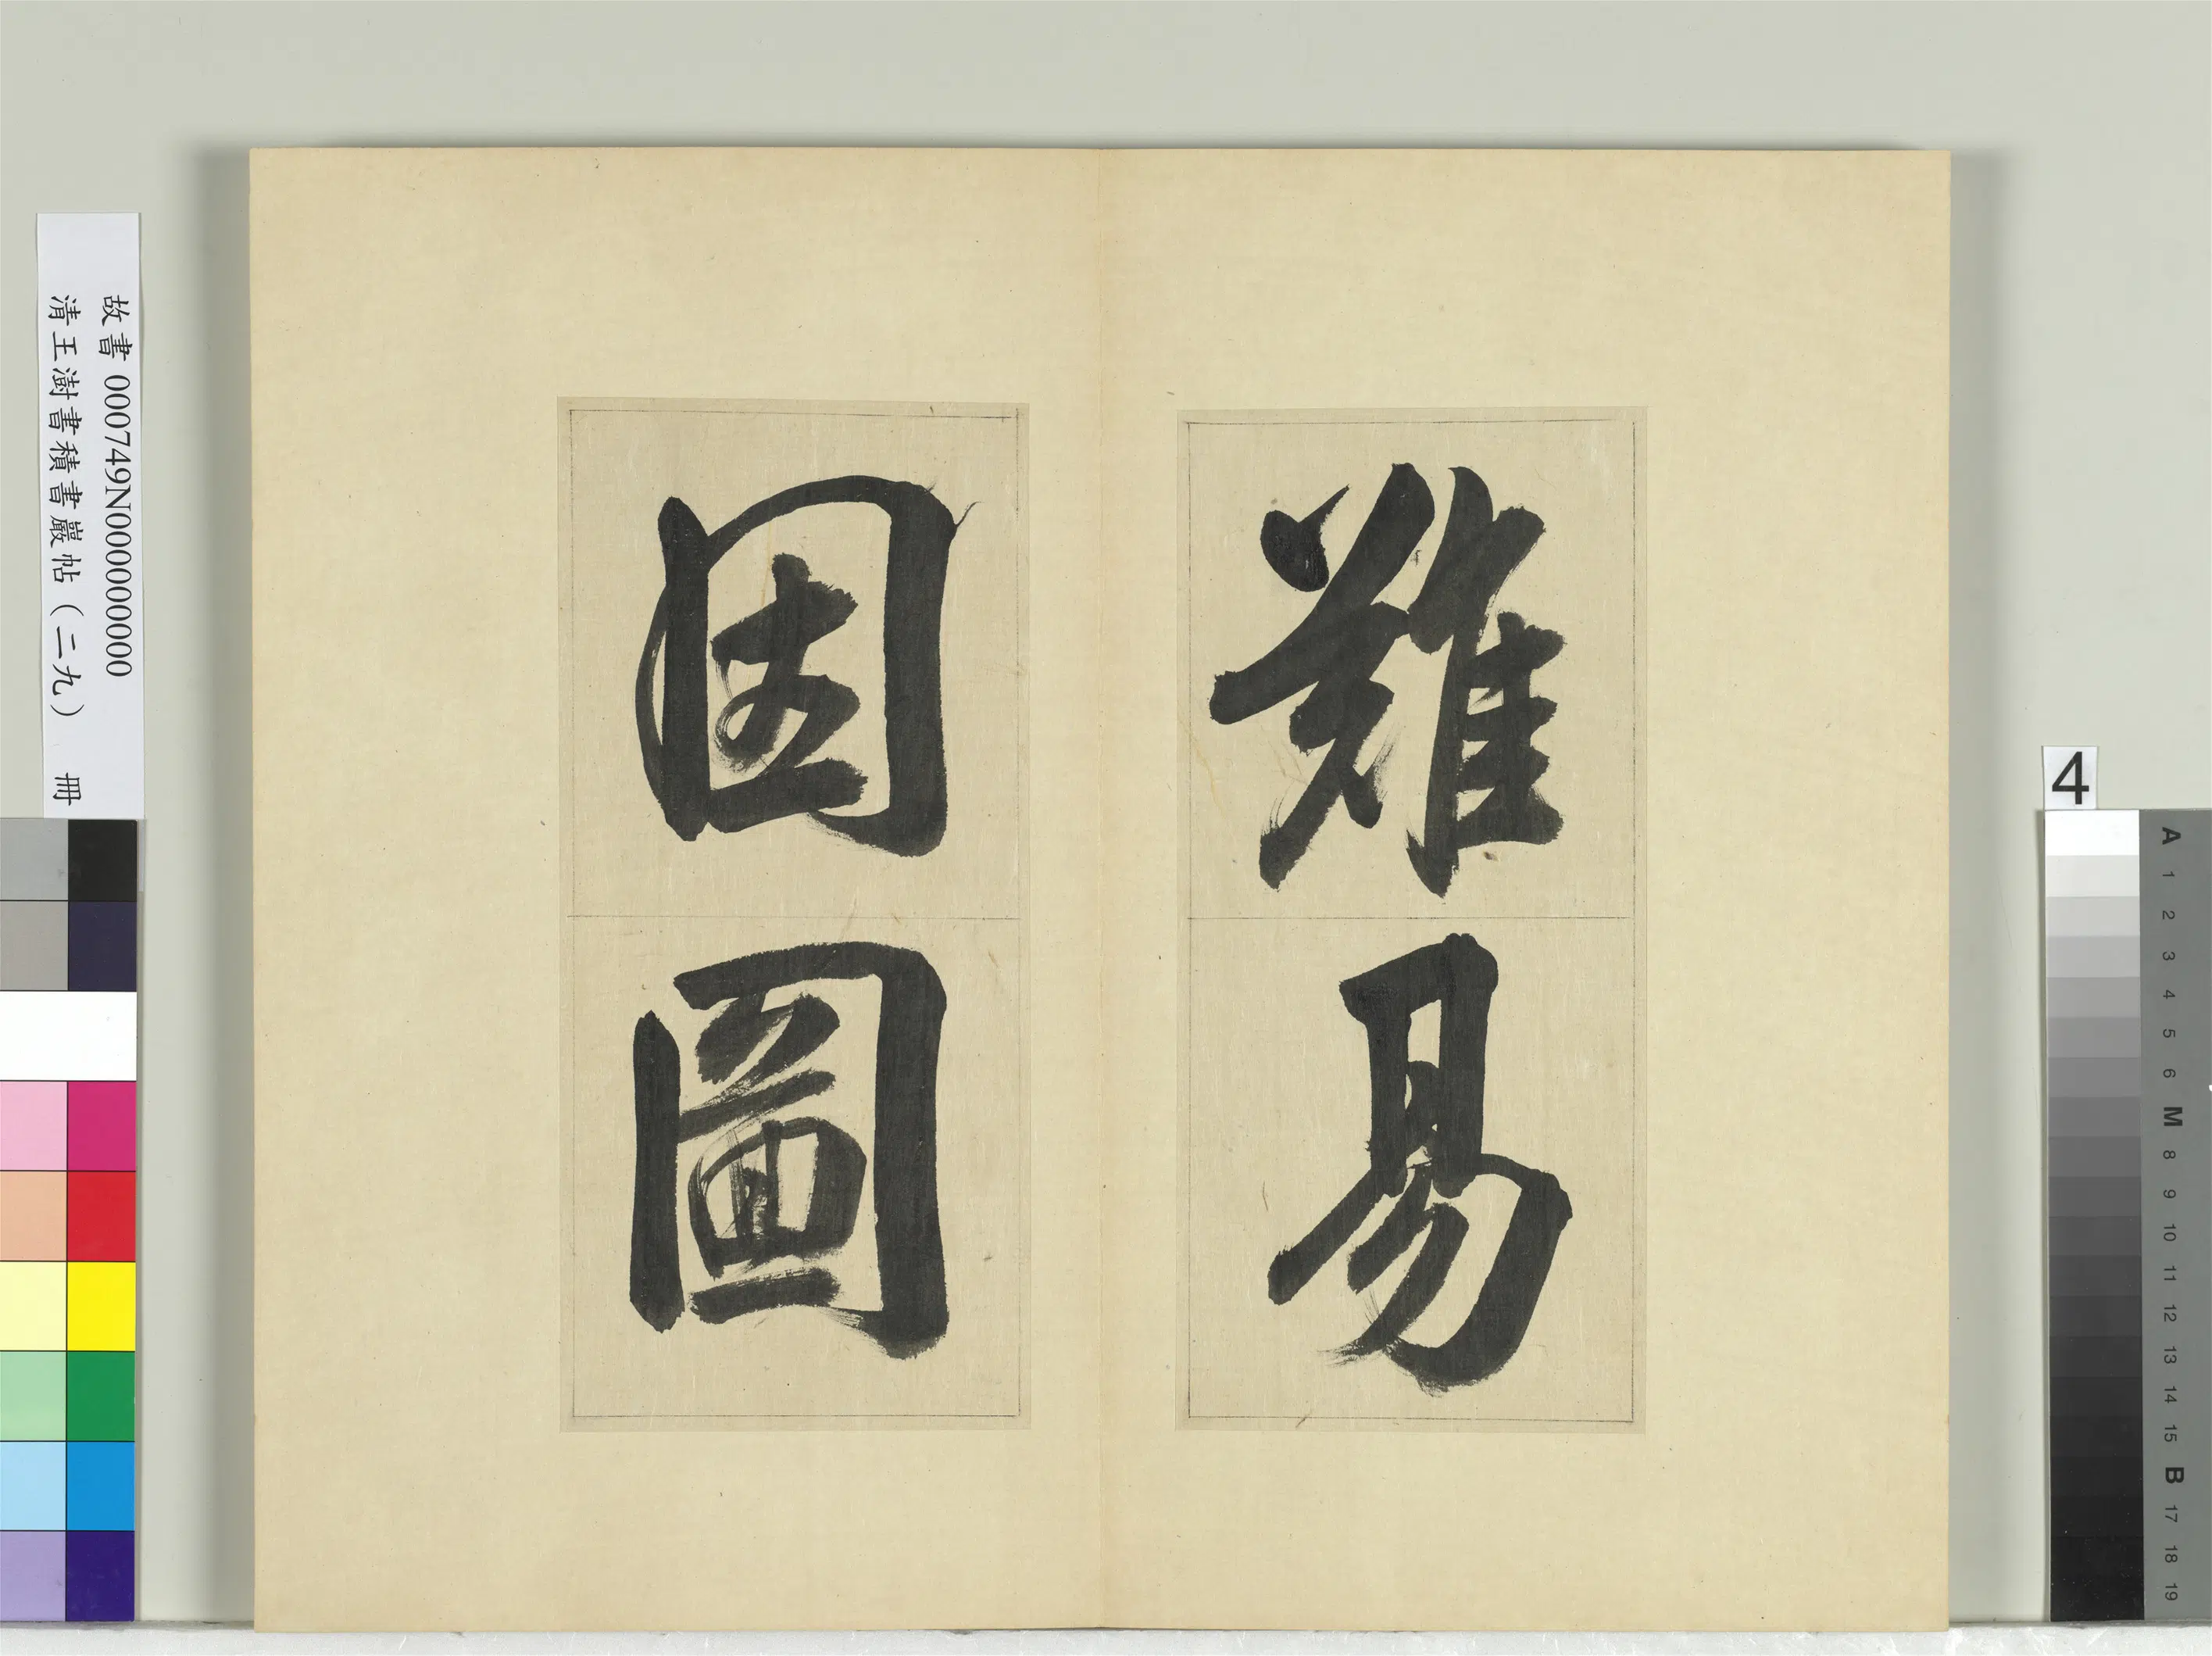 難易
固圖
故書000749N000000000
清王澍書積書巖帖（二九） 冊
4
A
1
2
3
4
5
6
M
8
9
10
11
12
13
14
15
B
17
18
19